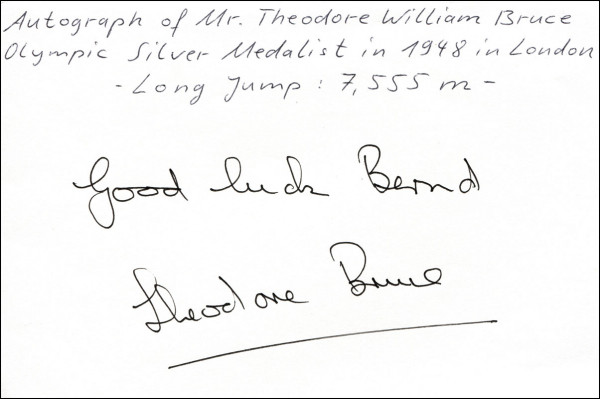 Autograph of Mr. Theodore William Bruce
Olympic Silver Medalist in 1948 in London
- Long Jump : 7,555 m -
Good luck Bernd
Theodore Bruce